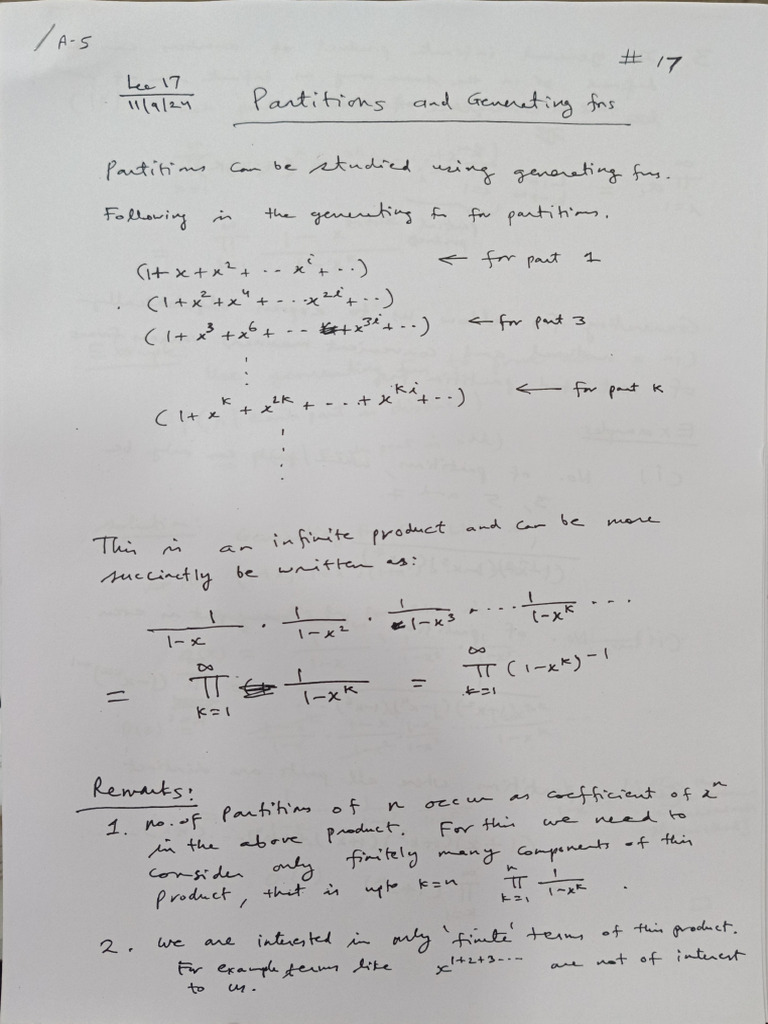 / A-5
# 17
Lec 17
11/9/24
Partitions and Generating fns
Partitions can be studied using generating fns.
Following is the generating fn for partitions.
(1+x+x²+ -- xⁱ+ --) ← for part 1
(1+x²+x⁴+ --- x²ⁱ+ --)
(1+x³+x⁶+ -- +x³ⁱ+ --) ← for part 3
(1+x^k+x^{2k}+ --- + x^{ki}+ --) ← for part k
This is an infinite product and can be more
succinctly be written as:
1/(1-x) · 1/(1-x²) · 1/(1-x³) ---- 1/(1-x^k) ---
= ∏_{k=1}^{∞} 1/(1-x^k) = ∏_{k=1}^{∞} (1-x^k)^{-1}
Remarks:
1. no. of partitions of n occur as coefficient of x^n
in the above product. For this we need to
consider only finitely many components of this
product, that is upto k=n ∏_{k=1}^{n} 1/(1-x^k) .
2. we are interested in only 'finite' terms of this product.
For example terms like x^{1+2+3----} are not of interest
to us.